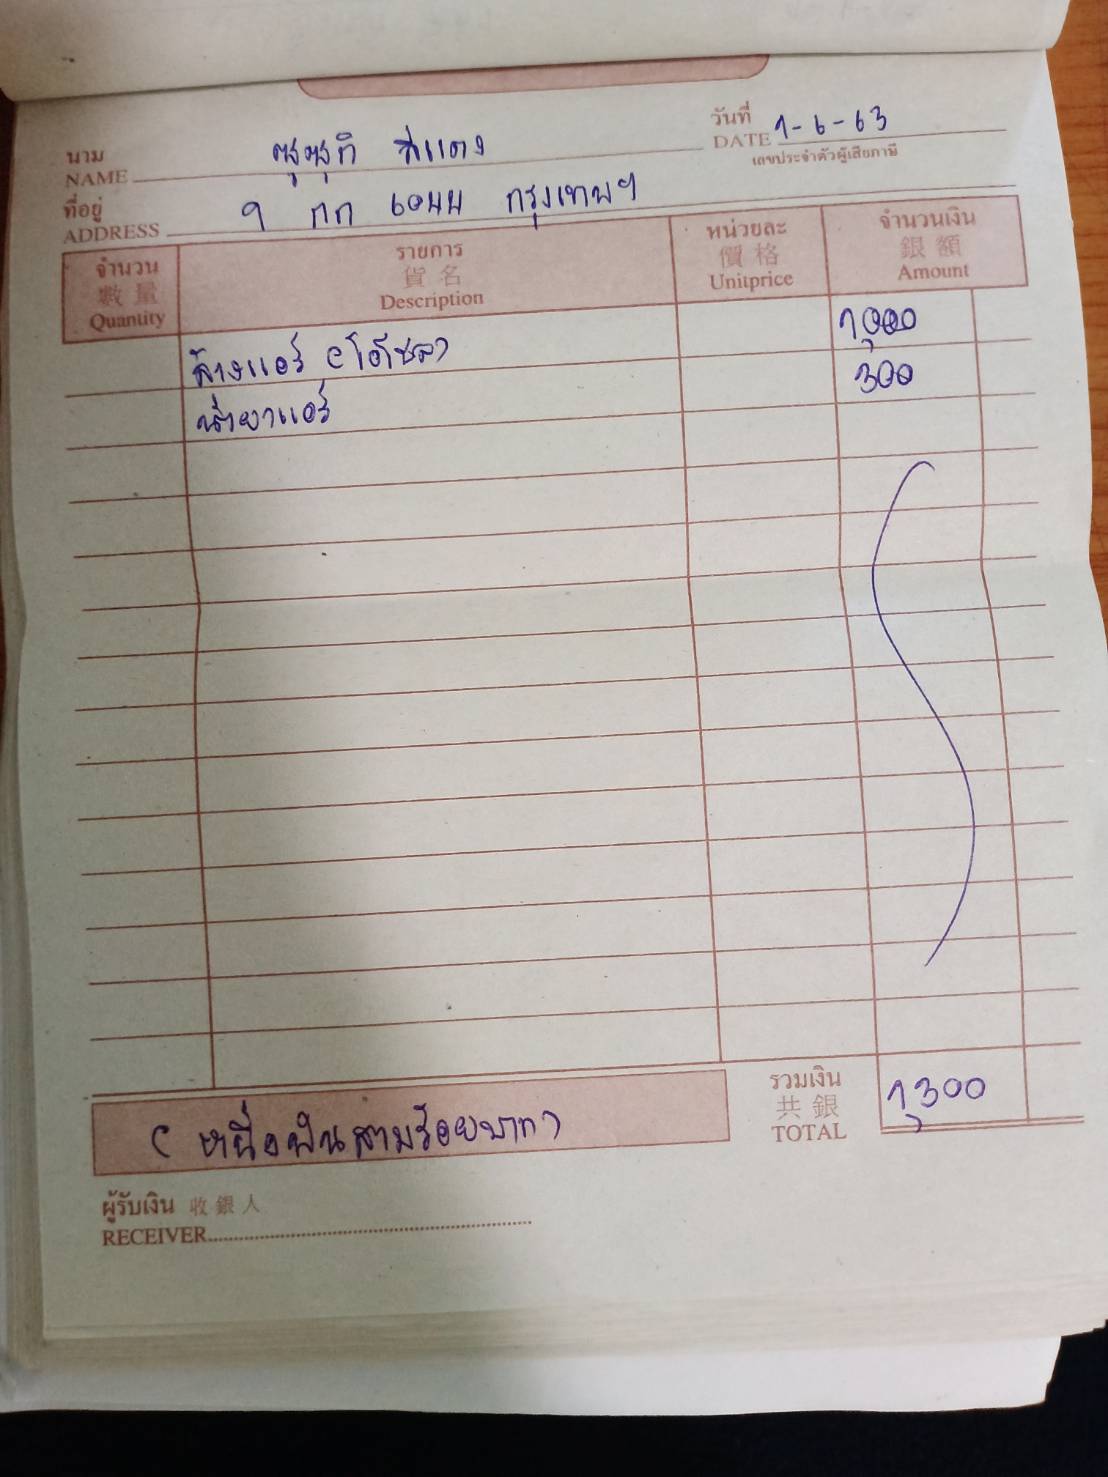 วันที่
นาม
DATE 1-6-63
NAME
เลขประจำตัวผู้เสียภาษี
ที่อยู่
ADDRESS 9 กท 60 กรุงเทพฯ
จำนวน รายการ หน่วยละ จำนวนเงิน
數量 貨名 價格 銀額
Quantity Description Unitprice Amount
ล้างแอร์ 1,000
น้ำยาแอร์ 300
รวมเงิน
共銀
TOTAL 1,300
( หนึ่งพันสามร้อยบาท )
ผู้รับเงิน 收銀人
RECEIVER